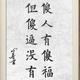 傻人有傻福
但傻逼沒有